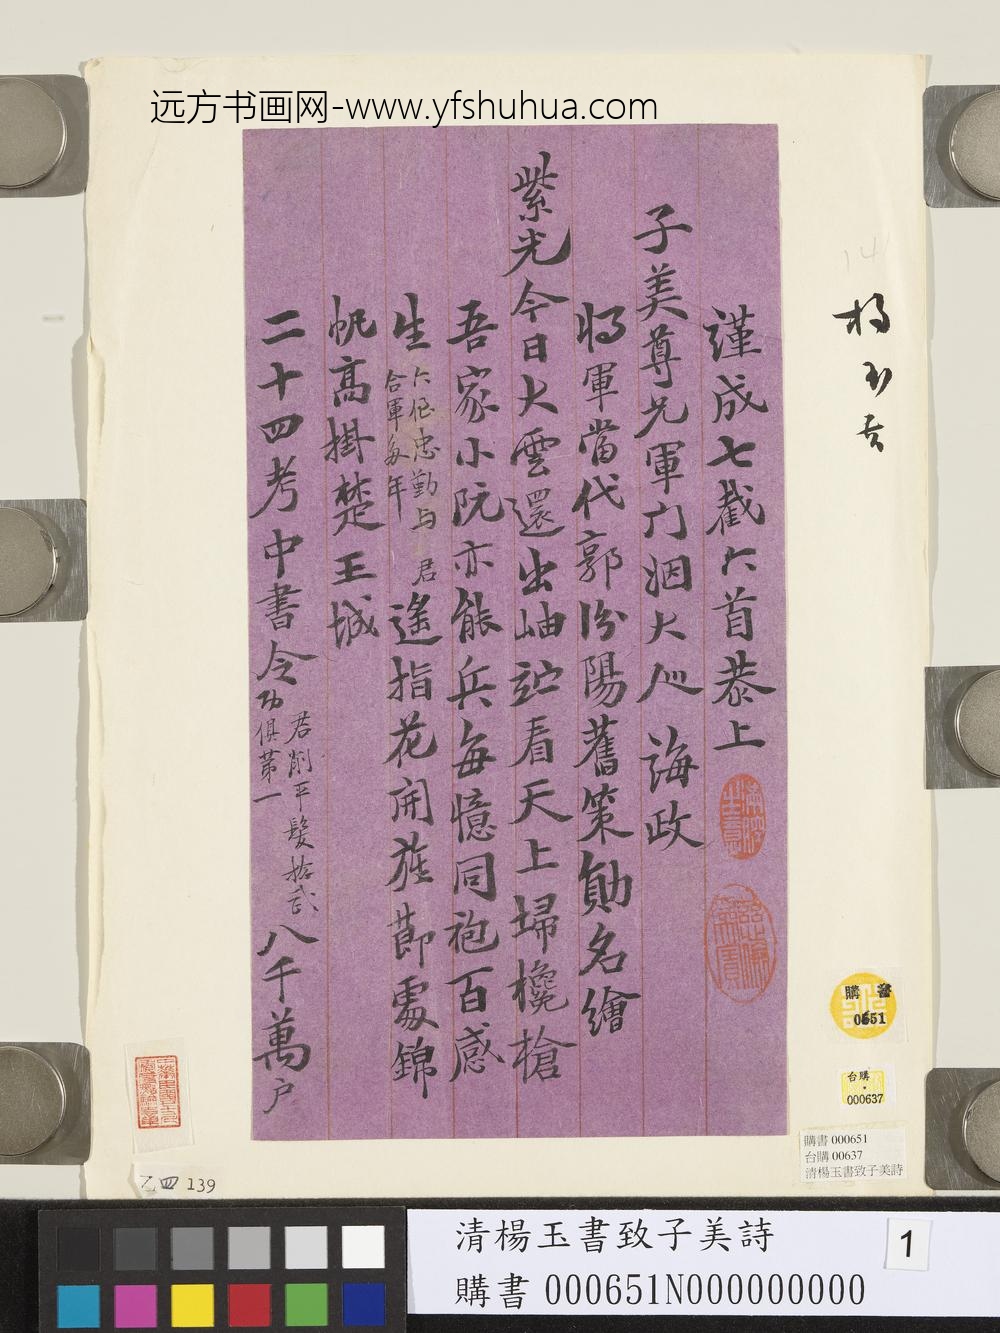 远方书画网-www.yfshuhua.com
謹成七截六首恭上
子美尊兄軍门烟大人 誨政
將軍當代郭汾陽舊策勛名繪
紫光今日大雲還出岫竚看天上埽欃槍
吾家小阮亦能兵每憶同袍百感
生
六侄忠勤与君
合軍多年
遙指花開旌莭處錦
帆高掛楚王城
二十四考中書令
君削平髮捻武
功俱第一
八千萬户
141
楊玉書
購書
0651
台購
000637
購書 000651
台購 00637
清楊玉書致子美詩
乙四 139
清楊玉書致子美詩
1
購書 000651N000000000